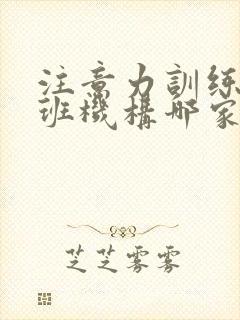 注意力訓練
班機構哪家
芝芝雾雾